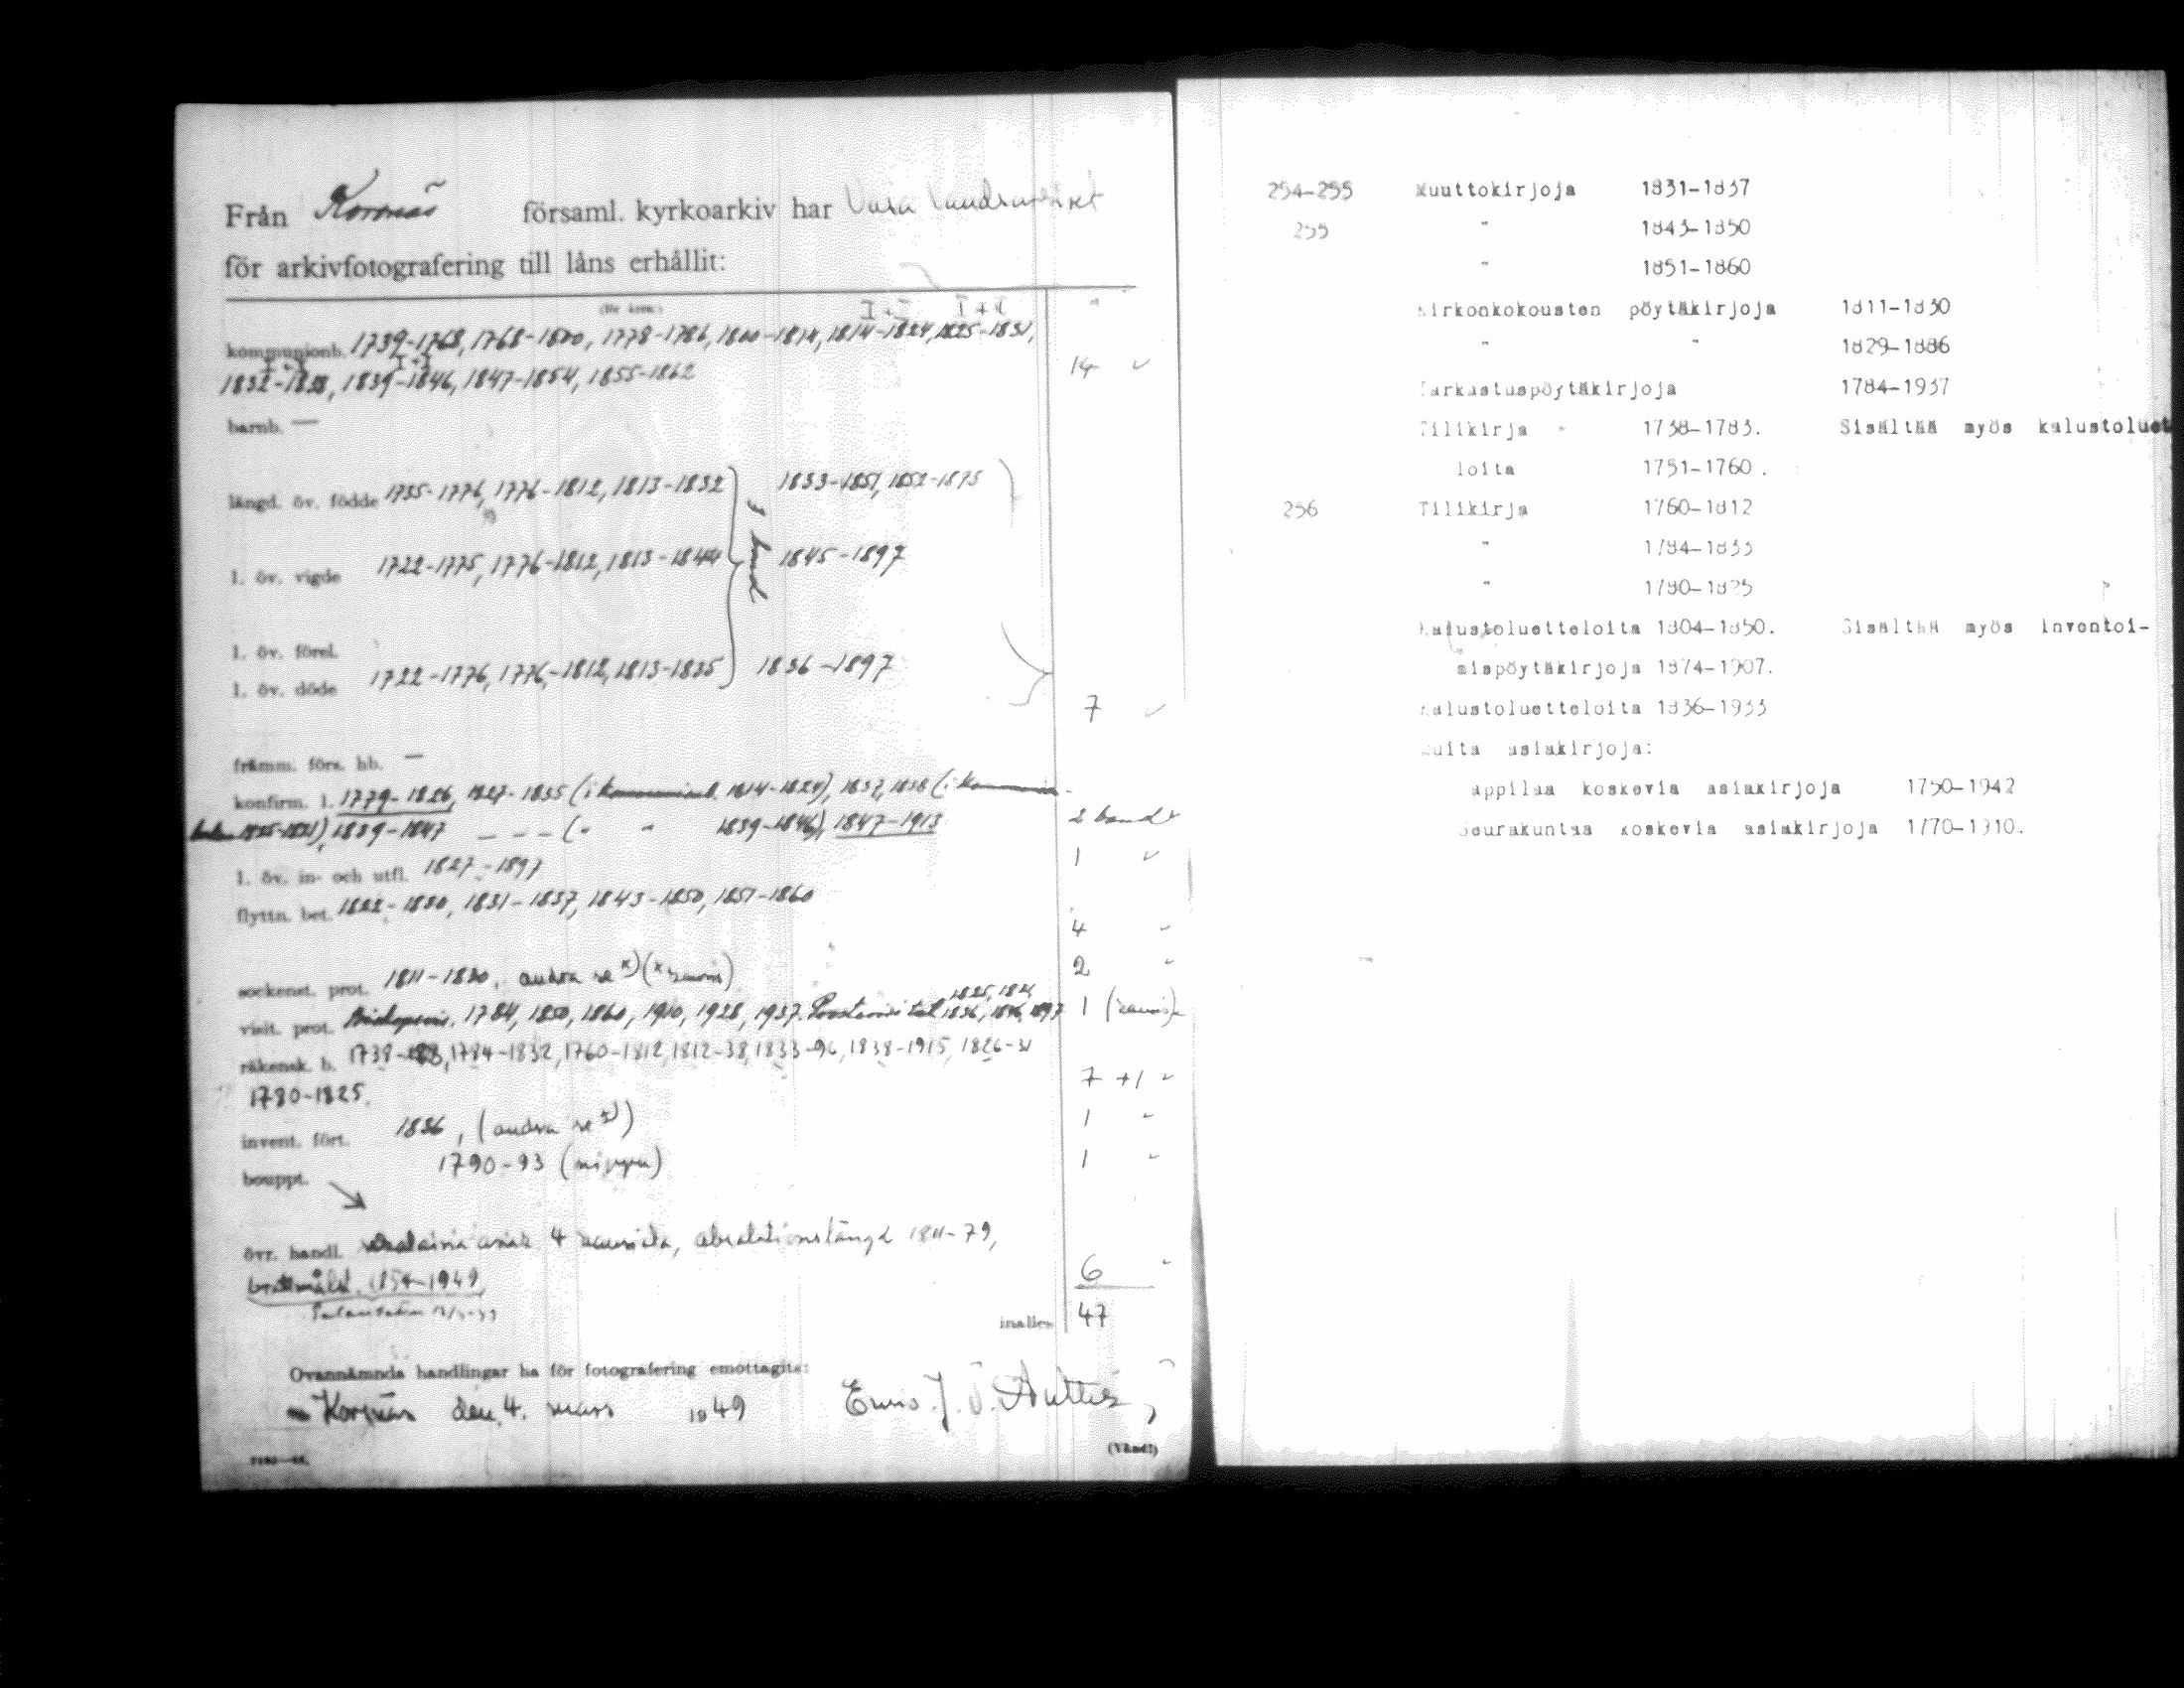 Från Korsnäs församl. kyrkoarkiv har Vasa landsarkivet
för arkivfotografering till låns erhållit:
I+I I+I
kommunionb. 1739-1768, 1768-1800, 1778-1786, 1800-1814, 1814-1824, 1825-1831,
1832-1838, 1839-1846, 1847-1854, 1855-1862 14
barnb. —
längd. öv. födde 1735-1776, 1776-1812, 1813-1832 1833-1851, 1852-1875
3 band
l. öv. vigde 1722-1775, 1776-1812, 1813-1844 1845-1897
l. öv. förel.
l. öv. döde 1722-1776, 1776-1812, 1813-1835 1836-1897
7
främm. förs. bb. —
konfirm. l. 1779-1826, 1827-1835 (i kommunionb. 1814-1824), 1837, 1838 (i kommunion-
boken 1825-1831), 1839-1847 - - - (" " 1839-1846), 1847-1913 2 band
l. öv. in- och utfl. 1827-1897 1
flyttn. bet. 1822-1830, 1831-1837, 1843-1850, 1851-1860
4
sockenst. prot. 1811-1830, andra se x) 2
visit. prot. Biskopsvis. 1784, 1850, 1860, 1910, 1928, 1937. 1836, 1846, 1897 1
räkensk. b. 1738-83, 1784-1832, 1760-1812, 1812-38, 1833-96, 1838-1915, 1826-31
1780-1825. 7 +1
invent. fört. 1836, (andra se x)) 1
bouppt. 1790-93 (nippu) 1
övr. handl. 4 absolutionslängd 1811-79,
1854-1949 6
inalles 47
Ovannämnda handlingar ha för fotografering emottagits:
Korsnäs den 4. mars 1949
(Vänd!)
254-255 Muuttokirjoja 1831-1837
255 " 1843-1850
" 1851-1860
Kirkonkokousten pöytäkirjoja 1811-1830
" " 1829-1886
Tarkastuspöytäkirjoja 1784-1937
Tilikirja - 1738-1783. Sisältää myös kalustoluet
loita 1751-1760.
256 Tilikirja 1760-1812
" 1784-1833
" 1780-1825
Kalustoluetteloita 1804-1850. Sisältää myös inventoi-
mispöytäkirjoja 1874-1907.
Kalustoluetteloita 1836-1933
Muita asiakirjoja:
appilaa koskevia asiakirjoja 1750-1942
Seurakuntaa koskevia asiakirjoja 1770-1910.